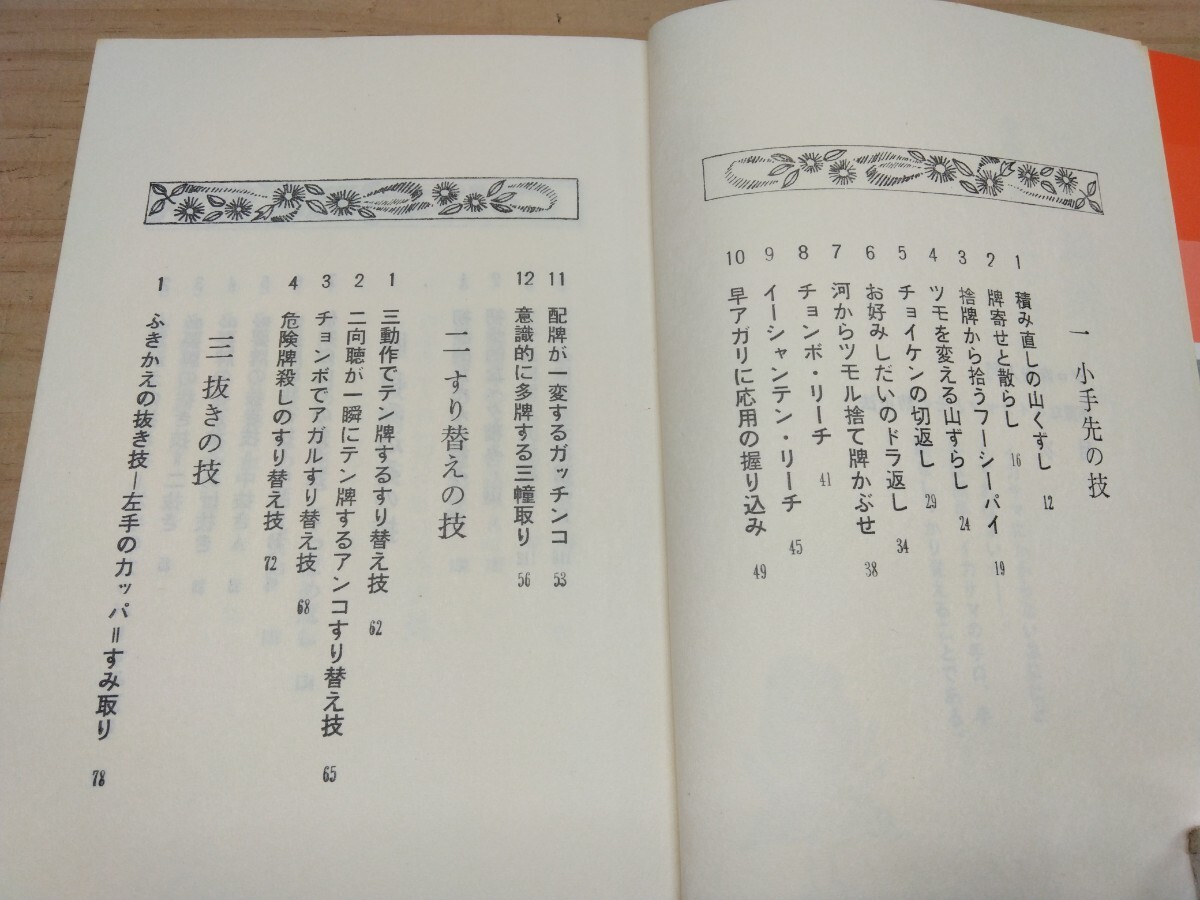 一 小手先の技
1 積み直しの山くずし 12
2 牌寄せと散らし 16
3 捨牌から拾うフーシーパイ 19
4 ツモを変える山ずらし 24
5 チョイケンの切返し 29
6 お好みしだいのドラ返し 34
7 河からツモル捨て牌かぶせ 38
8 チョンボ・リーチ 41
9 イーシャンテン・リーチ 45
10 早アガリに応用の握り込み 49
11 配牌が一変するガッチンコ 53
12 意識的に多牌する三幢取り 56
二 すり替えの技
1 三動作でテン牌するすり替え技 62
2 二向聴が一瞬にテン牌するアンコすり替え技 65
3 チョンボでアガルすり替え技 68
4 危険牌殺しのすり替え技 72
三 抜きの技
1 ふきかえの抜き技―左手のカッパ=すみ取り 78